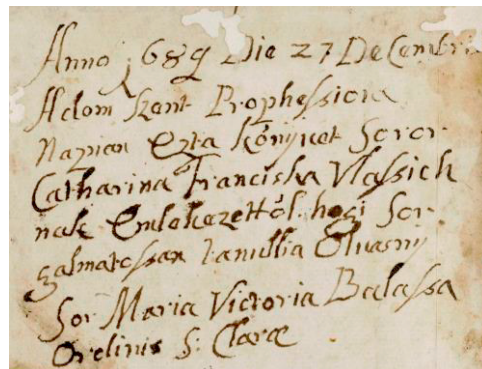 Anno 1689 Die 27 Decembris
Adom Szent Prophessiom
Napian Ezta Kőnijvet Soror
Catharina Franciska Vlassich
nak Emlekezettől. hogi Sor
galmatossan tanullia Oluasnij
Sor Maria Victoria Balassa
Ordinis S: Claræ